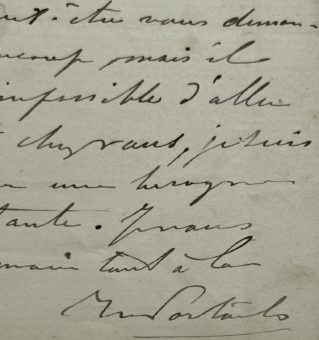 eut-être vous deman-
aucoup mais il
impossible d'aller
chez vous, je suis
une besogne
tante. Je vous
main tout à la